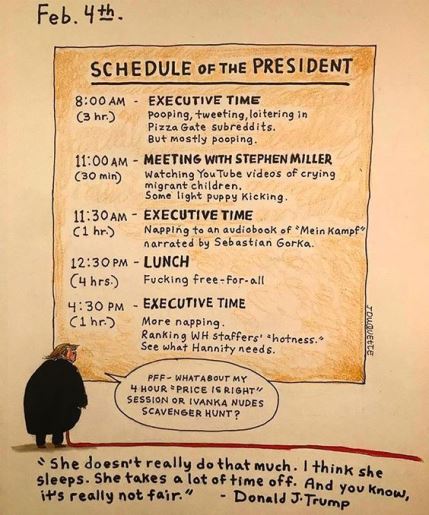 Feb. 4th.
SCHEDULE OF THE PRESIDENT
8:00 AM - EXECUTIVE TIME
(3 hr.) Pooping, tweeting, loitering in
Pizza Gate subreddits.
But mostly pooping.
11:00 AM - MEETING WITH STEPHEN MILLER
(30 min) Watching YouTube videos of crying
migrant children.
Some light puppy kicking.
11:30 AM - EXECUTIVE TIME
(1 hr.) Napping to an audiobook of "Mein Kampf"
narrated by Sebastian Gorka.
12:30 PM - LUNCH
(4 hrs.) Fucking free-for-all
4:30 PM - EXECUTIVE TIME
(1 hr.) More napping.
Ranking WH staffers' "hotness."
See what Hannity needs.
JDUQUETTE
PFF - WHAT ABOUT MY
4 HOUR "PRICE IS RIGHT"
SESSION OR IVANKA NUDES
SCAVENGER HUNT?
"She doesn't really do that much. I think she
sleeps. She takes a lot of time off. And you know,
it's really not fair." - Donald J. Trump